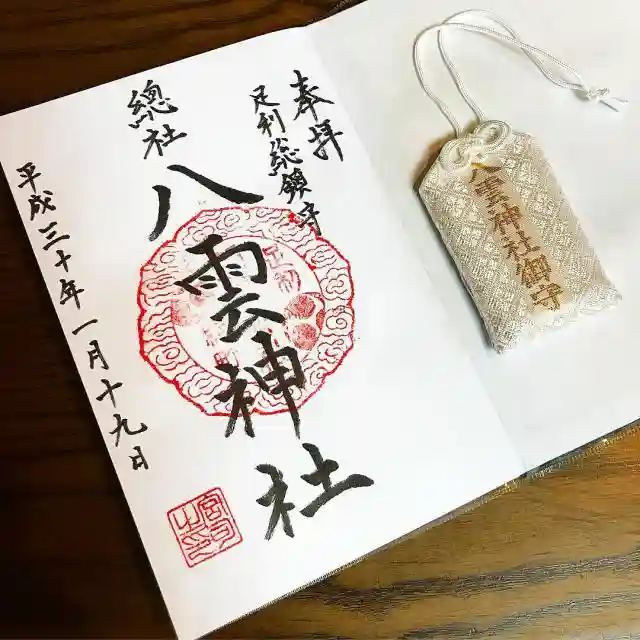 奉拝
足利總鎮守
總社
八雲神社
平成三十年一月十九日
宮司之印
八雲神社御守